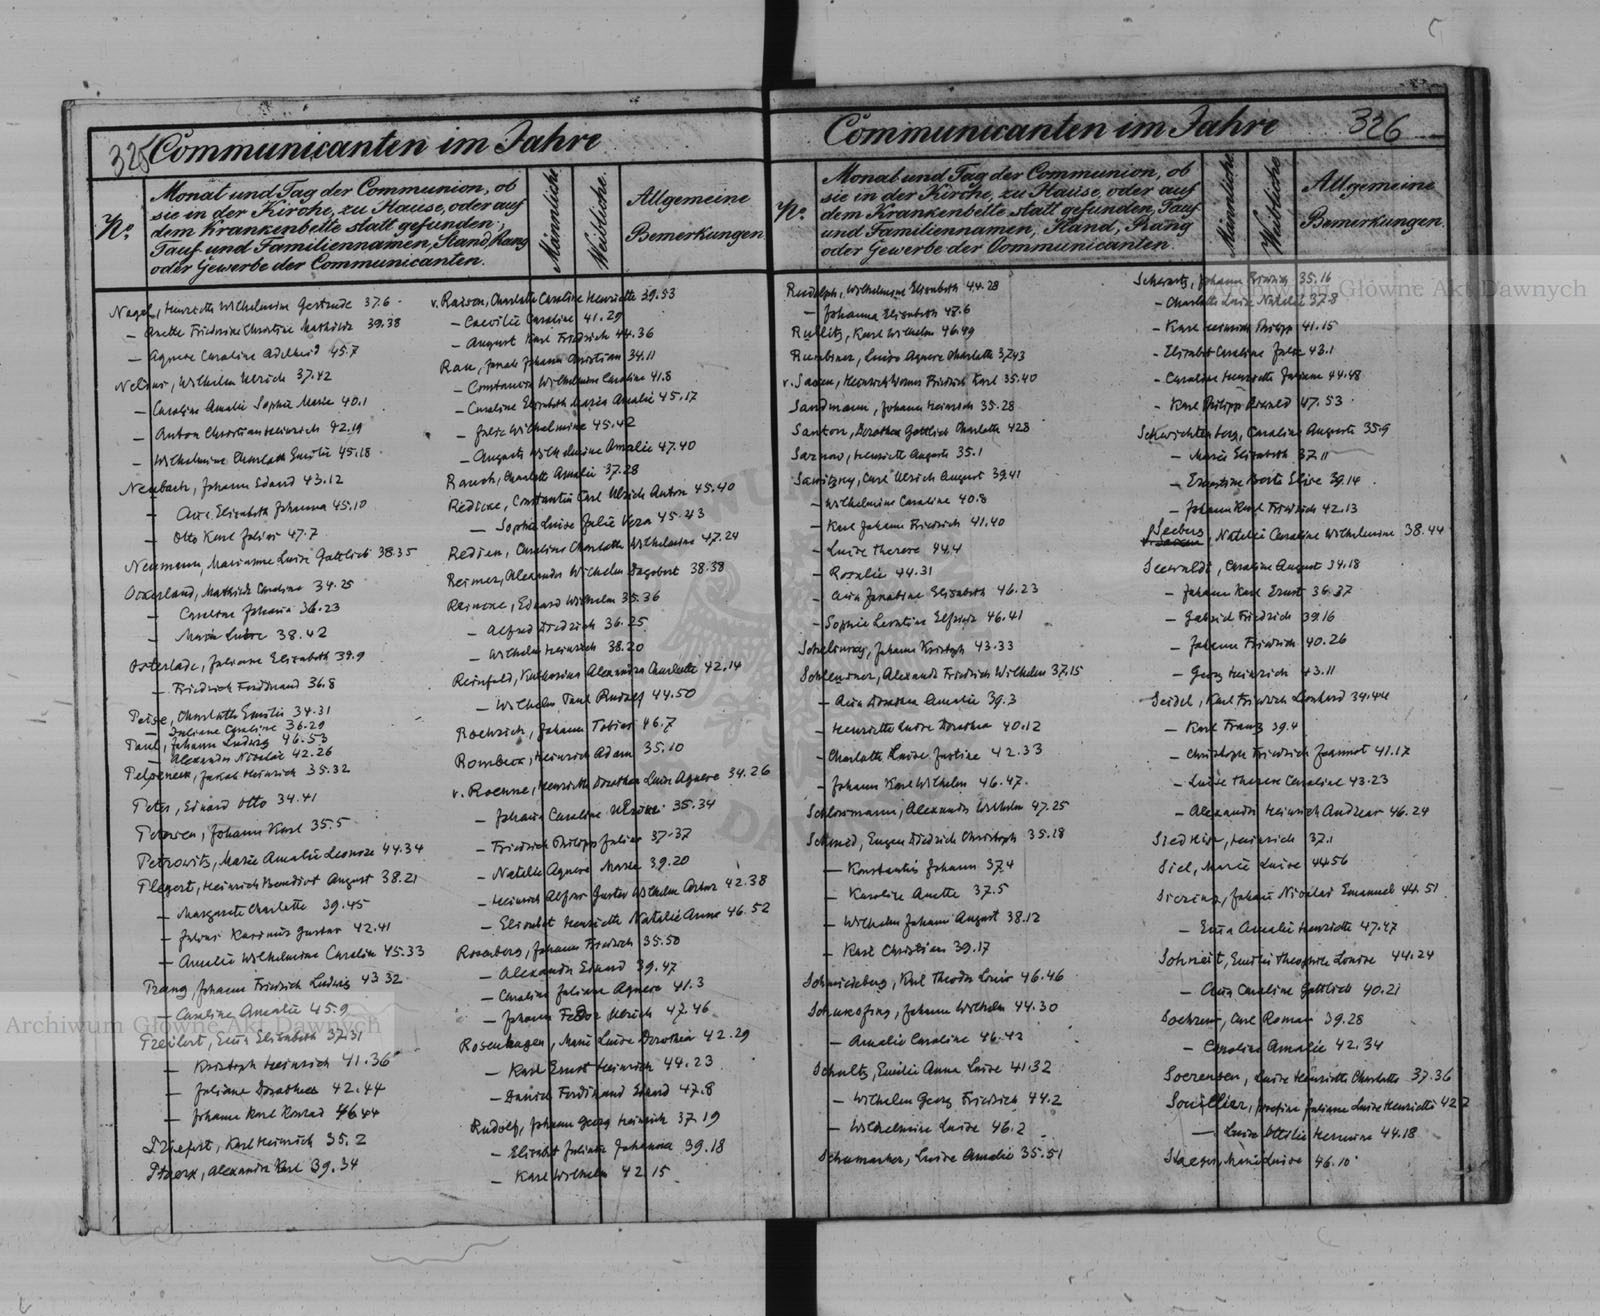 325 Communicanten im Jahre
No.
Monat und Tag der Communion, ob
sie in der Kirche, zu Hause, oder auf
dem Krankenbette statt gefunden;
Tauf- und Familiennamen, Stand, Rang
oder Gewerbe der Communicanten.
Männliche.
Weibliche.
Allgemeine
Bemerkungen.
Nagel, Henriette Wilhelmine Gertrude 37.6
— Anette Friedrine Christine Mathilde 39.38
— Agnese Caroline Adelheid 45.7
Wilhelm Ulrich 37.42
— Caroline Amalie Sophie Marie 40.1
— Anton Christian Heinrich 42.19
— Wilhelmine Charlotte Emilie 45.18
Neubach, Johann Eduard 43.12
— Elisabeth Johanna 45.10
— Otto Karl Julius 47.7
Neumann, Marianne Luise Gottlieb 38.35
Ockerland, Mathilde Carolina 34.25
— Caroline Johanna 36.23
— Maria Luise 38.42
Osterlade, Juliane Elisabeth 39.9
— Friedrich Ferdinand 36.8
Charlotte Emilie 34.31
— Juliane Caroline 36.29
Paul, Johann Ludwig 46.53
— Alexander Nicolai 42.26
Jakob Heinrich 35.32
Peter, Eduard Otto 34.41
Petersen, Johann Karl 35.5
Petrowitz, Marie Amalie Leonore 44.34
Plagert, Heinrich Benedict August 38.21
— Margarete Charlotte 39.45
— Julius Gustav 42.41
— Amalie Wilhelmine Carolin 45.33
Prang, Johann Friedrich Ludwig 43.32
— Caroline Amalie 45.9
Elisabeth 37.31
— Kristoph Heinrich 41.36
— Juliane Dorothea 42.44
— Johann Karl Konrad 46.44
Karl Heinrich 35.2
Alexander Karl 39.34
v. Raison, Charlotte Caroline Henriette 39.53
— Caecilie Caroline 41.29
— August Karl Friedrich 44.36
Rau, Johann Christian 34.11
— Constantia Wilhelmine Caroline 41.8
— Caroline Elisabeth Maria Amalie 45.17
— Julie Wilhelmine 45.42
— Auguste Wilhelmine Amalie 47.40
Rauch, Charlotte Amalie 37.28
Redicke, Constantin Carl Ulrich Anton 45.40
— Sophie Luise Julie Vera 45.43
Redien, Caroline Charlotte Wilhelmine 47.24
Reimer, Alexander Wilhelm Dagobert 38.38
Reincke, Eduard Wilhelm 35.36
— Alfred Diedrich 36.25
— Wilhelm Heinrich 38.20
Reinfeld, Katharina Alexandra Charlotte 42.14
— Wilhelm Paul Rudolf 44.50
Roehrich, Johann Tobias 46.7
Rombeck, Heinrich Adam 35.10
v. Roenne, Henriette Dorothea Luise Agnese 34.26
— Johanna Caroline Ulrike 35.34
— Friedrich Philipp Julius 37.37
— Natalie Agnese Marie 39.20
— Heinrich Gustav Wilhelm Artur 42.38
— Elisabet Henriette Natalie Anna 46.52
Rosenberg, Johann Friedrich 35.50
— Alexander Eduard 39.47
— Caroline Juliane Agnese 41.3
— Johann Fedor Ulrich 47.46
Rosenhagen, Marie Luise Dorothea 42.29
— Karl Ernst Heinrich 44.23
— Daniel Ferdinand Eduard 47.8
Rudolf, Johann Georg Heinrich 37.19
— Elisabet Juliane Johanna 39.18
— Karl Wilhelm 42.15
Communicanten im Jahre 326
No.
Monat und Tag der Communion, ob
sie in der Kirche, zu Hause, oder auf
dem Krankenbette statt gefunden, Tauf
und Familiennamen, Stand, Rang
oder Gewerbe der Communicanten.
Männliche.
Weibliche.
Allgemeine
Bemerkungen.
Rudolph, Wilhelmine Elisabeth 44.28
— Johanna Elisabeth 48.6
Rullitz, Karl Wilhelm 46.49
Luise Agnese Charlotte 37.43
v. Heinrich Friedrich Karl 35.40
Sandmann, Johann Heinrich 35.28
Santon, Dorothea Gottlieb Charlotte 42.8
Sarnow, Henriette Auguste 35.1
Sawitzky, Carl Ulrich August 39.41
— Wilhelmine Caroline 40.8
— Karl Johann Friedrich 41.40
— Luise Therese 44.4
— Rosalie 44.31
— Elisabeth 46.23
— Sophie Leontine 46.41
Johann Kristoph 43.33
Schleusner, Alexander Friedrich Wilhelm 37.15
— Dorothea Amalie 39.3
— Henriette Luise Dorothea 40.12
— Charlotte Luise Justine 42.33
— Johann Karl Wilhelm 46.47
Schlossmann, Alexander Wilhelm 47.25
Schmid, Eugen Diedrich Christoph 35.18
— Konstantin Johann 37.4
— Karoline Anette 37.5
— Wilhelm Johann August 38.12
— Karl Christian 39.17
Schmiedeberg, Karl Theodor Louis 46.46
Johann Wilhelm 44.30
— Amalie Caroline 46.42
Schultz, Emilie Anna Luise 41.32
— Wilhelm Georg Friedrich 44.2
— Wilhelmine Luise 46.2
Schumacher, Luise Amalie 35.51
Schwartz, Johann 35.16
— Charlotte Luise 37.8
— Karl Heinrich Philipp 41.15
— Elisabet Caroline Julie 43.1
— Caroline Henriette Juliane 44.48
— Karl Philipp 47.53
Schwichtenberg, Caroline Auguste 35.9
— Marie Elisabeth 37.11
— Ernestine Elise 39.14
— Johann Karl Friedrich 42.13
v. Seeberg, Natalie Caroline Wilhelmine 38.44
Seewaldt, Caroline August 34.18
— Johann Karl Ernst 36.37
— Gabriel Friedrich 39.16
— Johann Friedrich 40.26
— Georg Heinrich 43.11
Seidel, Karl Friedrich Leonhard 34.44
— Karl Franz 39.4
— Christoph Friedrich 41.17
— Luise Therese Caroline 43.23
— Alexander Heinrich Andreas 46.24
Heinrich 37.1
Siel, Marie Luise 44.56
Johann Nicolai Emanuel 44.51
— Amalie Henriette 47.47
Emilie Theophile Louise 44.24
— Caroline Gottlieb 40.21
Carl Roman 39.28
— Caroline Amalie 42.34
Soerensen, Luise Henriette Charlotte 37.36
Juliane Luise Henriette 42.2
— Luise Ottilie Hermine 44.18
Staeger, Marie Luise 46.10
Archiwum Główne Akt Dawnych
Archiwum Główne Akt Dawnych